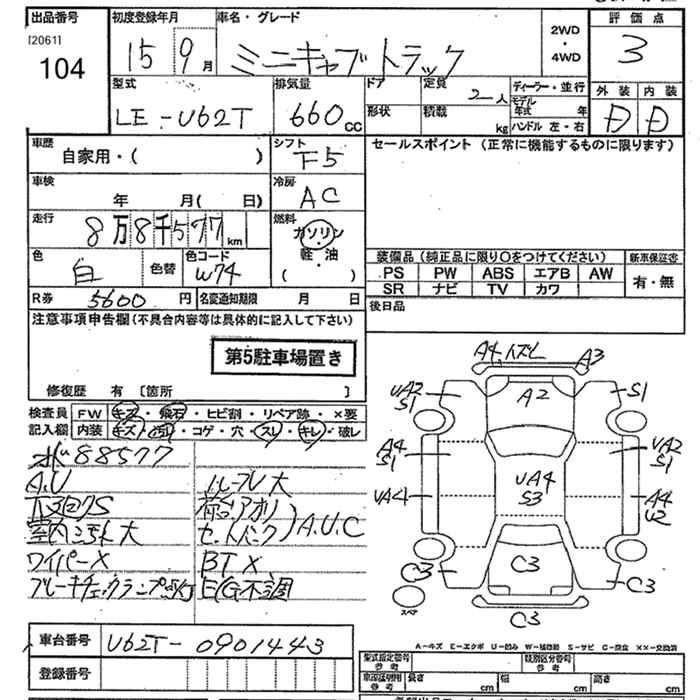 出品番号 初度登録年月 車名・グレード 評価点
[2061]
104
15 9月 ミニキャブトラック 2WD・4WD 3
型式 排気量 ドア 定員 ディーラー・並行 外装 内装
LE-U62T 660cc 2人 モデル年式 年
形状 積載 kg ハンドル 左・右 D D
車歴 シフト セールスポイント (正常に機能するものに限ります)
自家用・( ) F5
車検 冷房
年 月( 日) AC
走行 燃料
8万8千577km ガソリン・軽・油 ( )
色 色替 色コード 装備品 (純正品に限り○をつけてください) 新車保証書
白 W74 PS PW ABS エアB AW 有・無
SR ナビ TV カワ
R券 5600円 名変通知期限 月 日 後日品
注意事項申告欄(不具合内容等は具体的に記入して下さい)
第5駐車場置き
修復歴 有 [箇所 ]
検査員 FW キズ・飛石・ヒビ割・リペア跡・×要
記入欄 内装 キズ・コゲ・穴・スレ・キレ・破レ
88577
A.U ルーフU大
アオリ
室内 大 A.U.C
ワイパー× BT×
ブレーキチェックランプ点灯 E/G不調
A4 A3
UA2 S1 A2 S1
A4 S1 UA2 S1
UA4 UA4 S3 A4 U2
C3 C3 C3
スペア C3
A-キズ E-エクボ U-凹み W-補修跡 S-サビ C-腐食 ××-交換済
車台番号 U62T-0901443
登録番号
型式指定番号 参考 類別区分番号 参考
車検証明用 参考 長さ cm 幅 cm 高さ cm